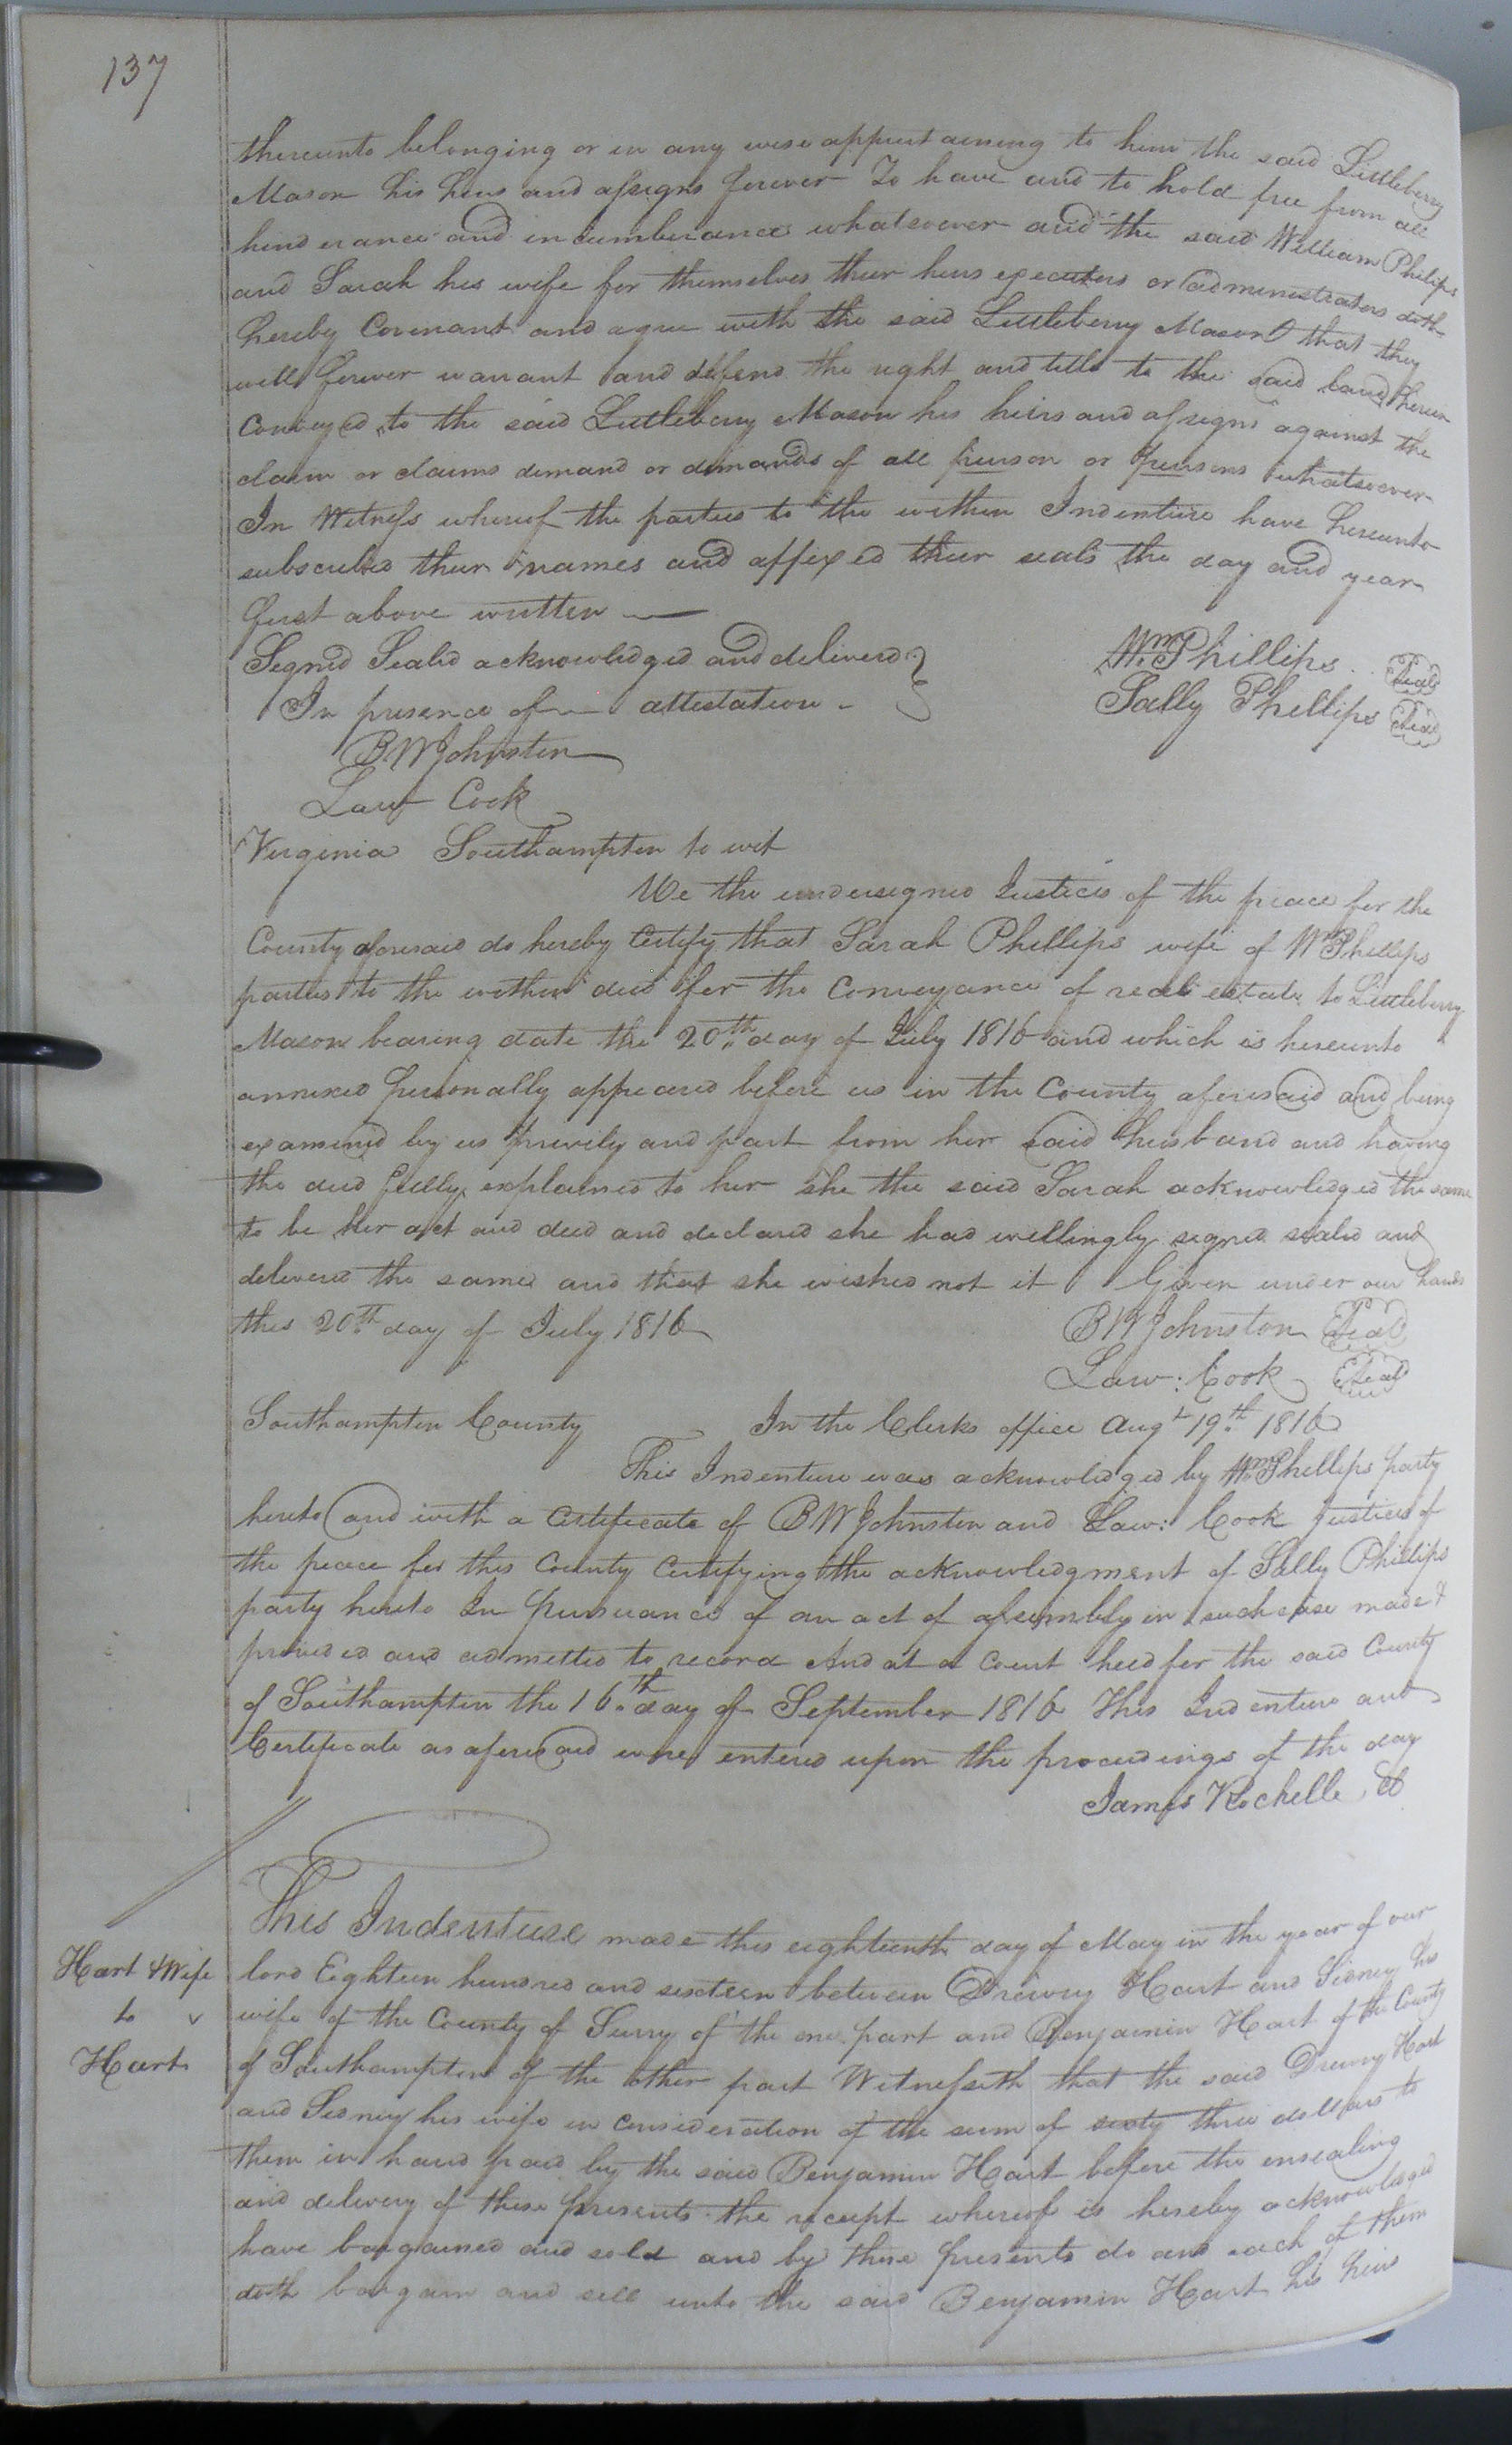 137
thereunto belonging or in any wise appertaining to him the said Littleberry
Mason his heirs and assigns forever To have and to hold free from all
hinderance and incumberance whatsoever and the said William Philips
and Sarah his wife for themselves their heirs executors or administrators doth
hereby Covenant and agree with the said Littleberry Mason that they
will forever warrant and defend the right and title to the said land herein
Conveyed to the said Littleberry Mason his heirs and assigns against the
claim or claims demand or demands of all person or persons whatsoever
In Witness whereof the parties to the within Indenture have hereunto
subscribed their names and affixed their seals the day and year
first above written
Signed Sealed acknowledged and delivered } Wm Phillips Seal
In presence of attestation Sally Phillips Seal
B W Johnston
Law Cook
Virginia Southampton to wit
We the undersigned Justices of the peace for the
County aforesaid do hereby Certify that Sarah Phillips wife of Wm Phillips
parties to the within deed for the Conveyance of real estate to Littleberry
Mason bearing date the 20th day of July 1816 and which is hereunto
annexed personally appeared before us in the County aforesaid and being
examined by us privily and part from her said husband and having
the deed fully explained to her she the said Sarah acknowledged the same
to be her act and deed and declared she had willingly signed sealed and
delivered the same and that she wished not it Given under our hands
this 20th day of July 1816 B W Johnston Seal
Law: Cook Seal
Southampton County In the Clerks office Augt 19th 1816
This Indenture was acknowledged by Wm Phillips party
hereto and with a Certificate of B W Johnston and Law: Cook Justices of
the peace for this County Certifying the acknowledgment of Sally Phillips
party hereto In pursuance of an act of assembly in such case made &
provided and admitted to record And at a Court held for the said County
of Southampton the 16th day of September 1816 This Indenture and
Certificate as aforesaid were entered upon the proceedings of the day
James Rochelle Cl
This Indenture made this eighteenth day of May in the year of our
Hart & Wife
to
Hart
lord Eighteen hundred and sixteen between Drewry Hart and Sidney his
wife of the County of Surry of the one part and Benjamin Hart of the County
of Southampton of the other part Witnesseth that the said Drewry Hart
and Sidney his wife in Consideration of the sum of sixty three dollars to
them in hand paid by the said Benjamin Hart before the ensealing
and delivery of these presents the receipt whereof is hereby acknowledged
have bargained and sold and by these presents do and each of them
doth bargain and sell unto the said Benjamin Hart his heirs